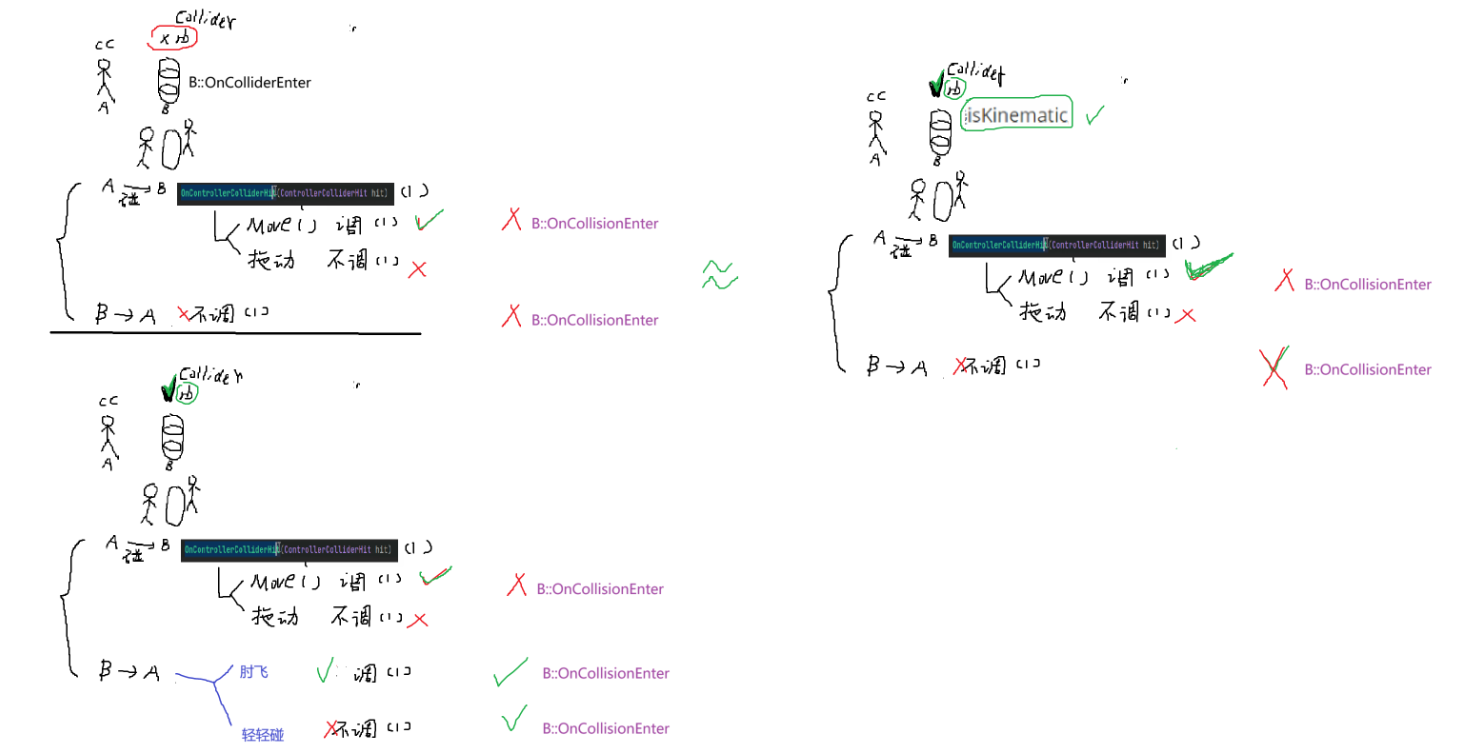 Collider
x rb
CC
A
B
B::OnColliderEnter
A → B OnControllerColliderHit(ControllerColliderHit hit) (1)
碰
Move() 调(1) ✓ X B::OnCollisionEnter
拖动 不调(1) X
B → A X不调(1) X B::OnCollisionEnter
Collider
✓ rb
CC
A
B
A → B OnControllerColliderHit(ControllerColliderHit hit) (1)
碰
Move() 调(1) ✓ X B::OnCollisionEnter
拖动 不调(1) X
B → A 肘飞 ✓ 调(1) ✓ B::OnCollisionEnter
轻轻碰 X不调(1) ✓ B::OnCollisionEnter
≈
Collider
✓ rb
CC
isKinematic ✓
A
B
A → B OnControllerColliderHit(ControllerColliderHit hit) (1)
碰
Move() 调(1) ✓ X B::OnCollisionEnter
拖动 不调(1) X
B → A X不调(1) X B::OnCollisionEnter